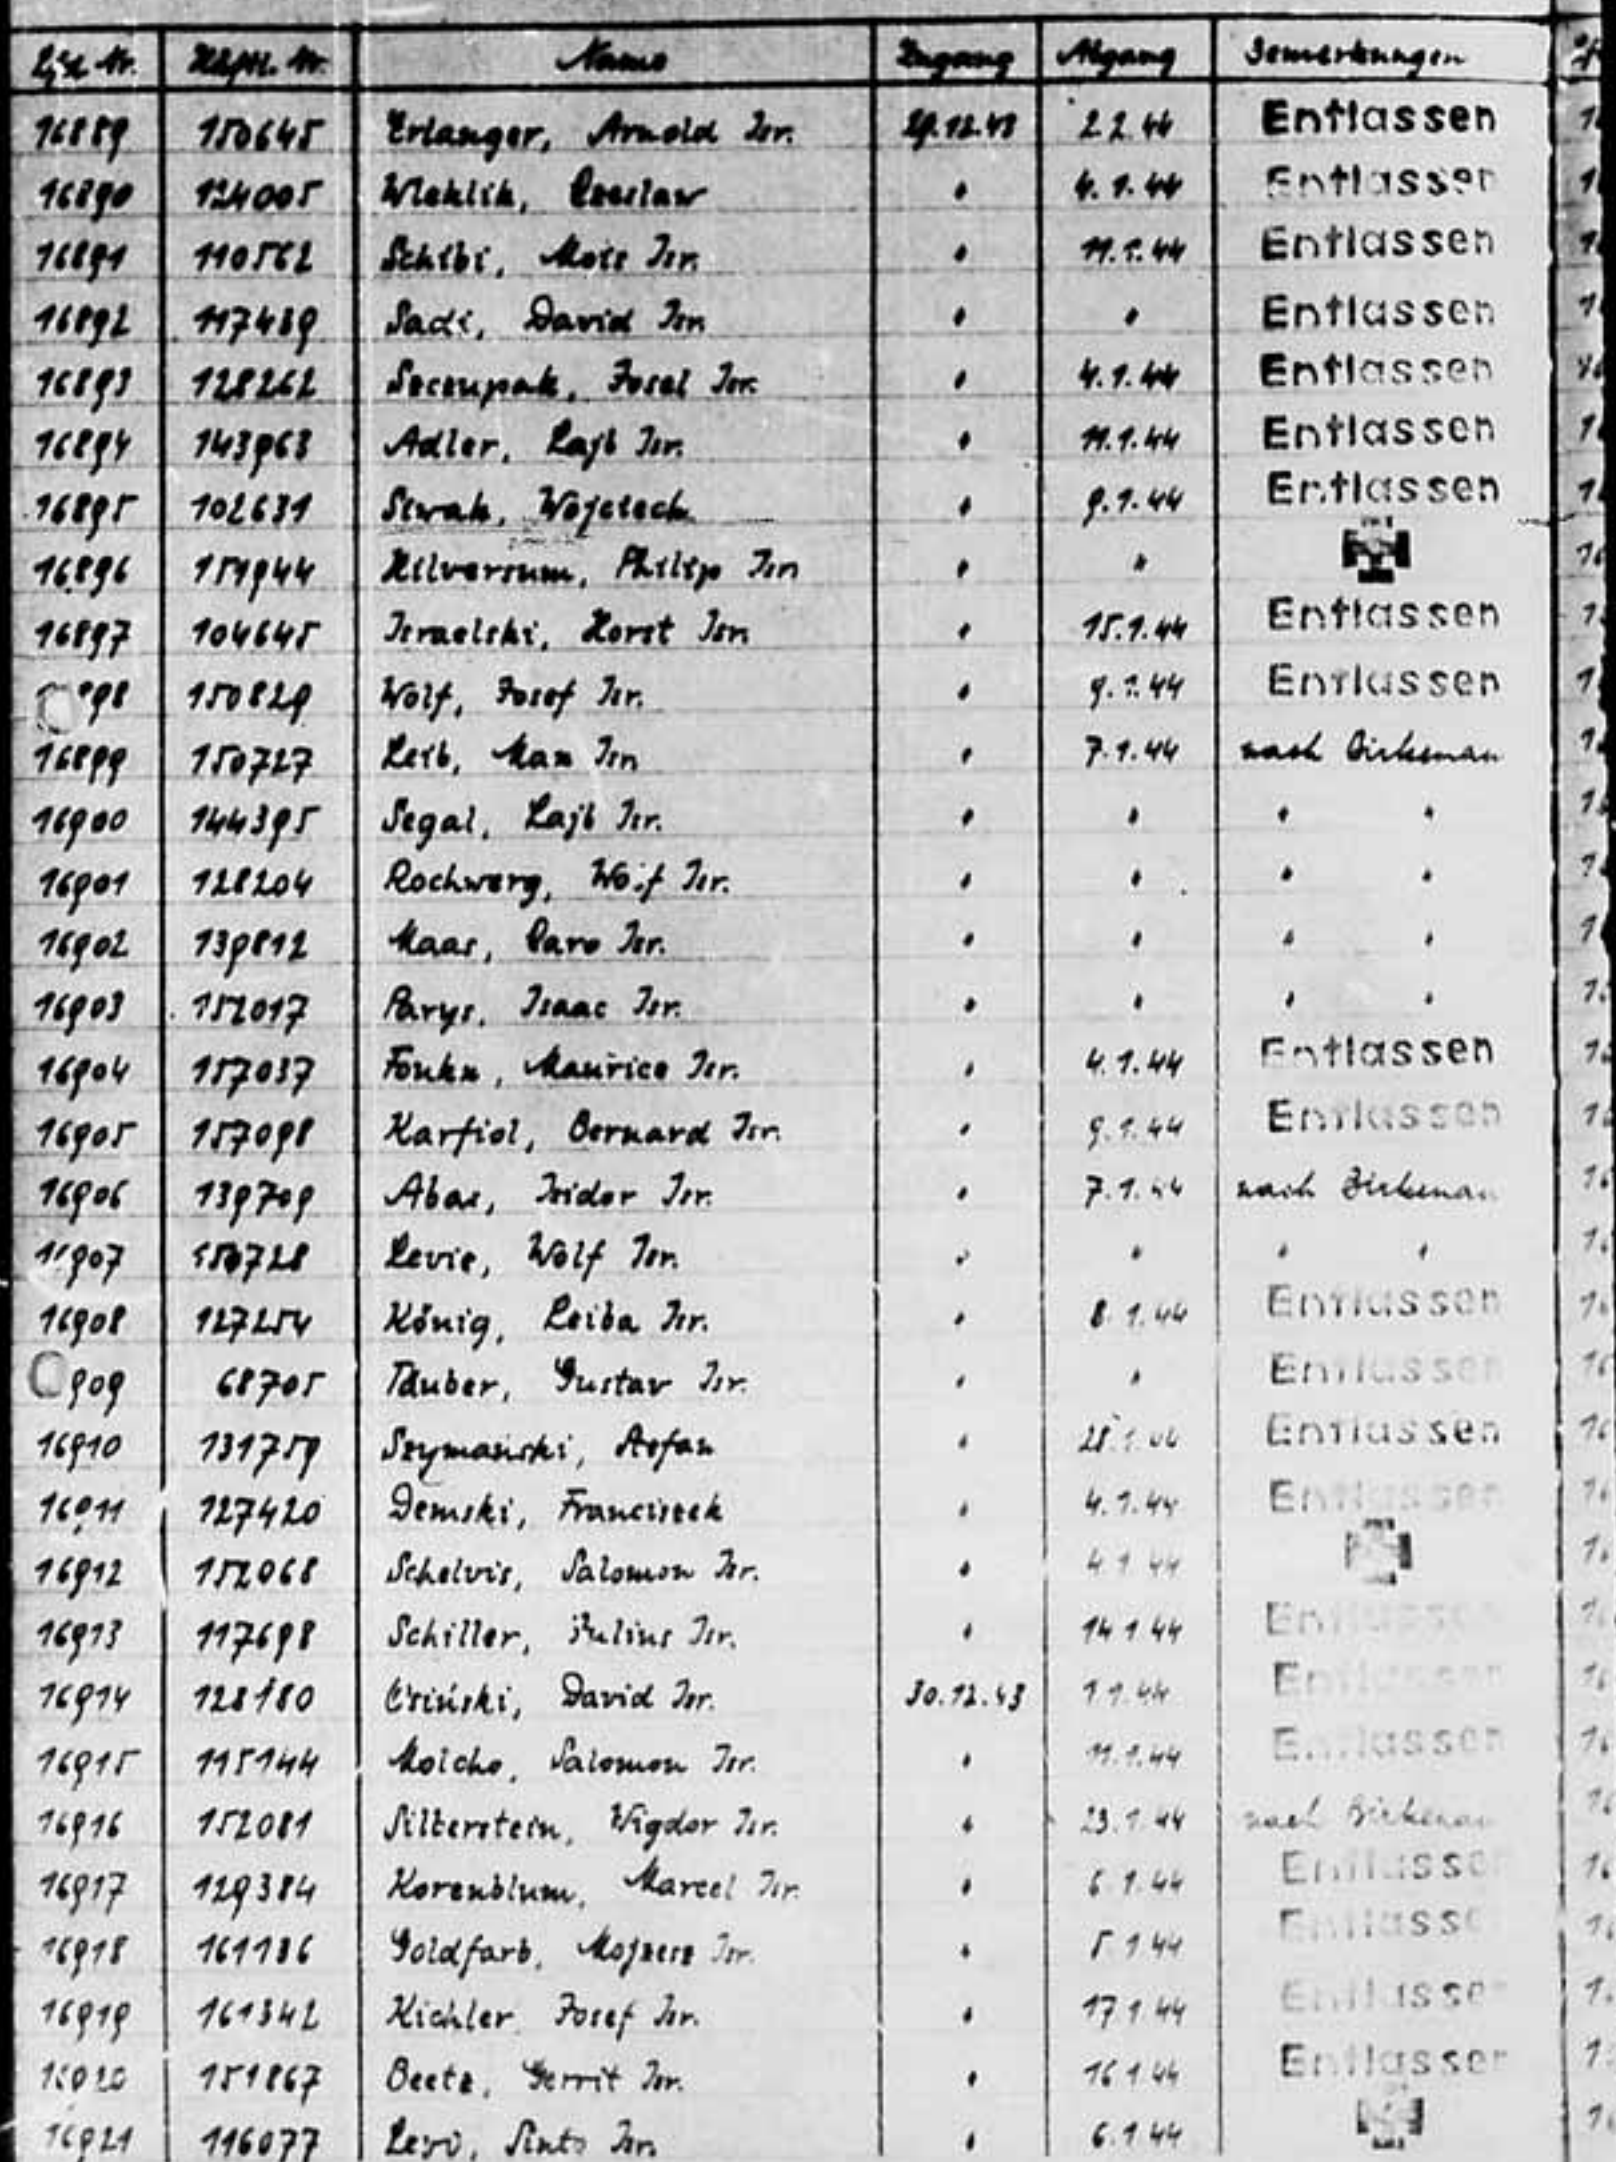 Lfd. Nr. Häftl. Nr. Name Zugang Abgang Bemerkungen
16889 150645 Erlanger, Arnold Isr. 29.12.43 2.2.44 Entlassen
16890 124005 Czeslaw " 4.1.44 Entlassen
16891 110562 Schibi, Mois Isr. " 11.1.44 Entlassen
16892 117489 Sadi, David Isr. " " Entlassen
16893 128262 Szczupak, Josel Isr. " 4.1.44 Entlassen
16894 143963 Adler, Lajb Isr. " 11.1.44 Entlassen
16895 102631 Siwak, Wojciech " 9.1.44 Entlassen
16896 151944 Hilversum, Philip Isr. " "
16897 104645 Israelski, Horst Isr. " 15.1.44 Entlassen
898 150829 Wolf, Josef Isr. " 9.1.44 Entlassen
16899 150727 Leib, Max Isr. " 7.1.44 nach Birkenau
16900 144395 Segal, Lajb Isr. " " " "
16901 128204 Rochwerg, Wolf Isr. " " " "
16902 139812 Maas, Caro Isr. " " " "
16903 152017 Parys, Isaac Isr. " " " "
16904 157037 Maurice Isr. " 4.1.44 Entlassen
16905 157098 Karfiol, Bernard Isr. " 9.1.44 Entlassen
16906 139709 Abas, Isidor Isr. " 7.1.44 nach Birkenau
16907 150728 Levie, Wolf Isr. " " " "
16908 127254 König, Leiba Isr. " 8.1.44 Entlassen
909 68705 Täuber, Gustav Isr. " " Entlassen
16910 131759 Szymański, Stefan " Entlassen
16911 127420 Demski, Franciszek " 4.1.44 Entlassen
16912 152068 Schelvis, Salomon Isr. " 4.1.44
16913 117698 Schiller, Julius Isr. " 14.1.44 Entlassen
16914 128180 David Isr. 30.12.43 1.1.44 Entlassen
16915 115144 Molcho, Salomon Isr. " 11.1.44 Entlassen
16916 152081 Silberstein, Wigdor Isr. " 23.1.44 nach Birkenau
16917 129384 Korenblum, Marcel Isr. " 6.1.44 Entlassen
16918 161186 Goldfarb, Mojzesz Isr. " 5.1.44 Entlassen
16919 161342 Kichler Josef Isr. " 17.1.44 Entlassen
16920 151867 Beetz, Gerrit Isr. " 16.1.44 Entlassen
16921 116077 Levi, Isr. " 6.1.44